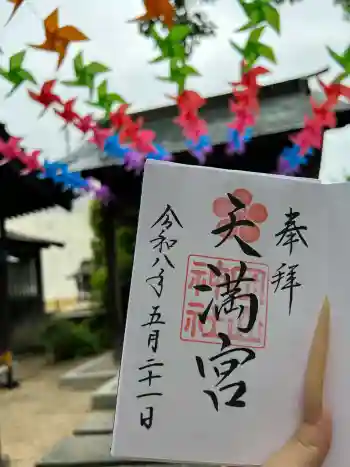 奉拝
天満宮
令和八年五月二十一日